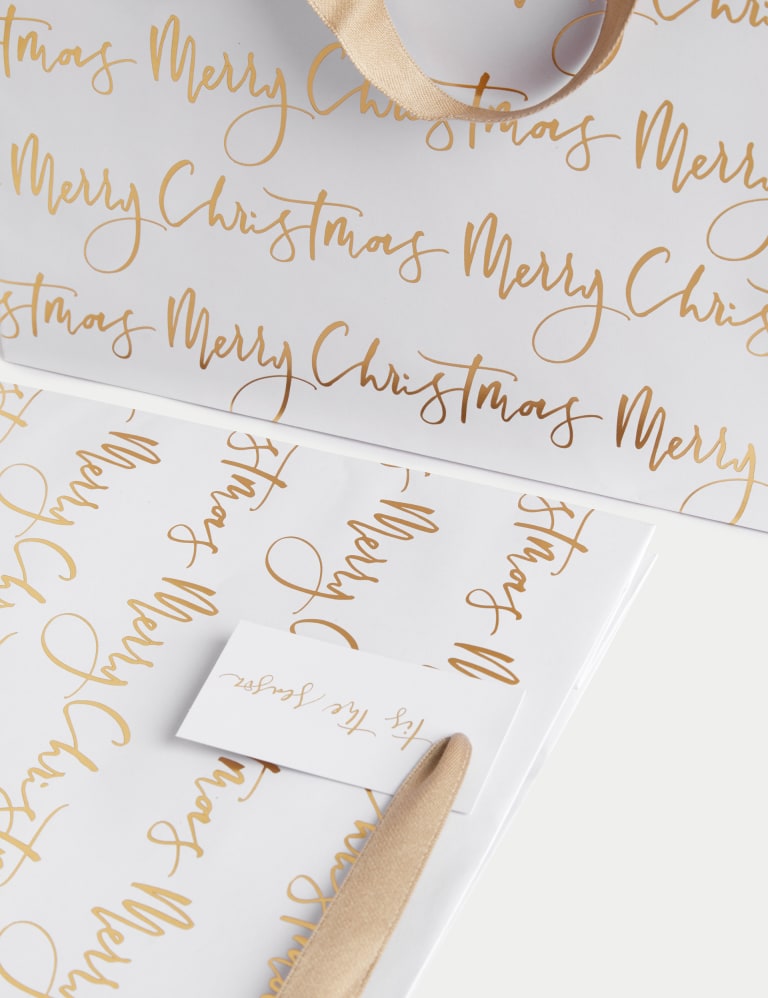 Merry Christmas
Merry Christmas Merry
Merry Christmas Merry
Merry Christmas Merry
Merry
Merry Christmas
Merry Christmas
Merry
tis the season